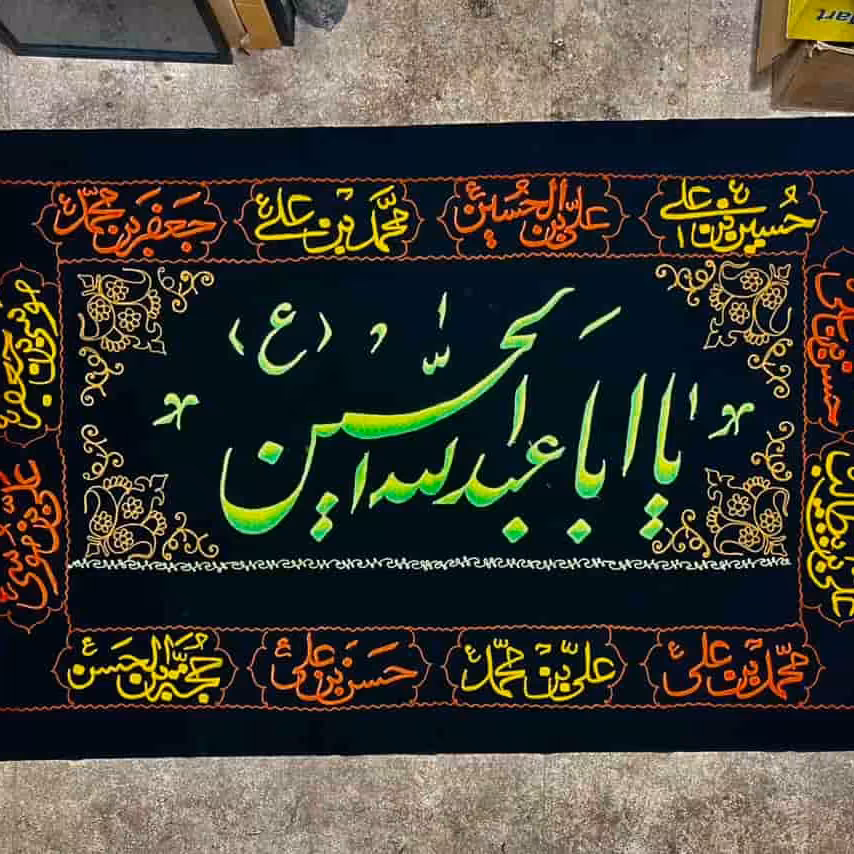 حسین بن علی ع
علی بن الحسین ع
محمد بن علی ع
جعفر بن محمد ع
حسن بن علی
موسی بن جعفر
یا ابا عبدالله الحسین (ع)
علی بن ابیطالب
علی بن موسی
محمد بن علی ع
علی بن محمد ع
حسن بن علی ع
حجة بن الحسن ع